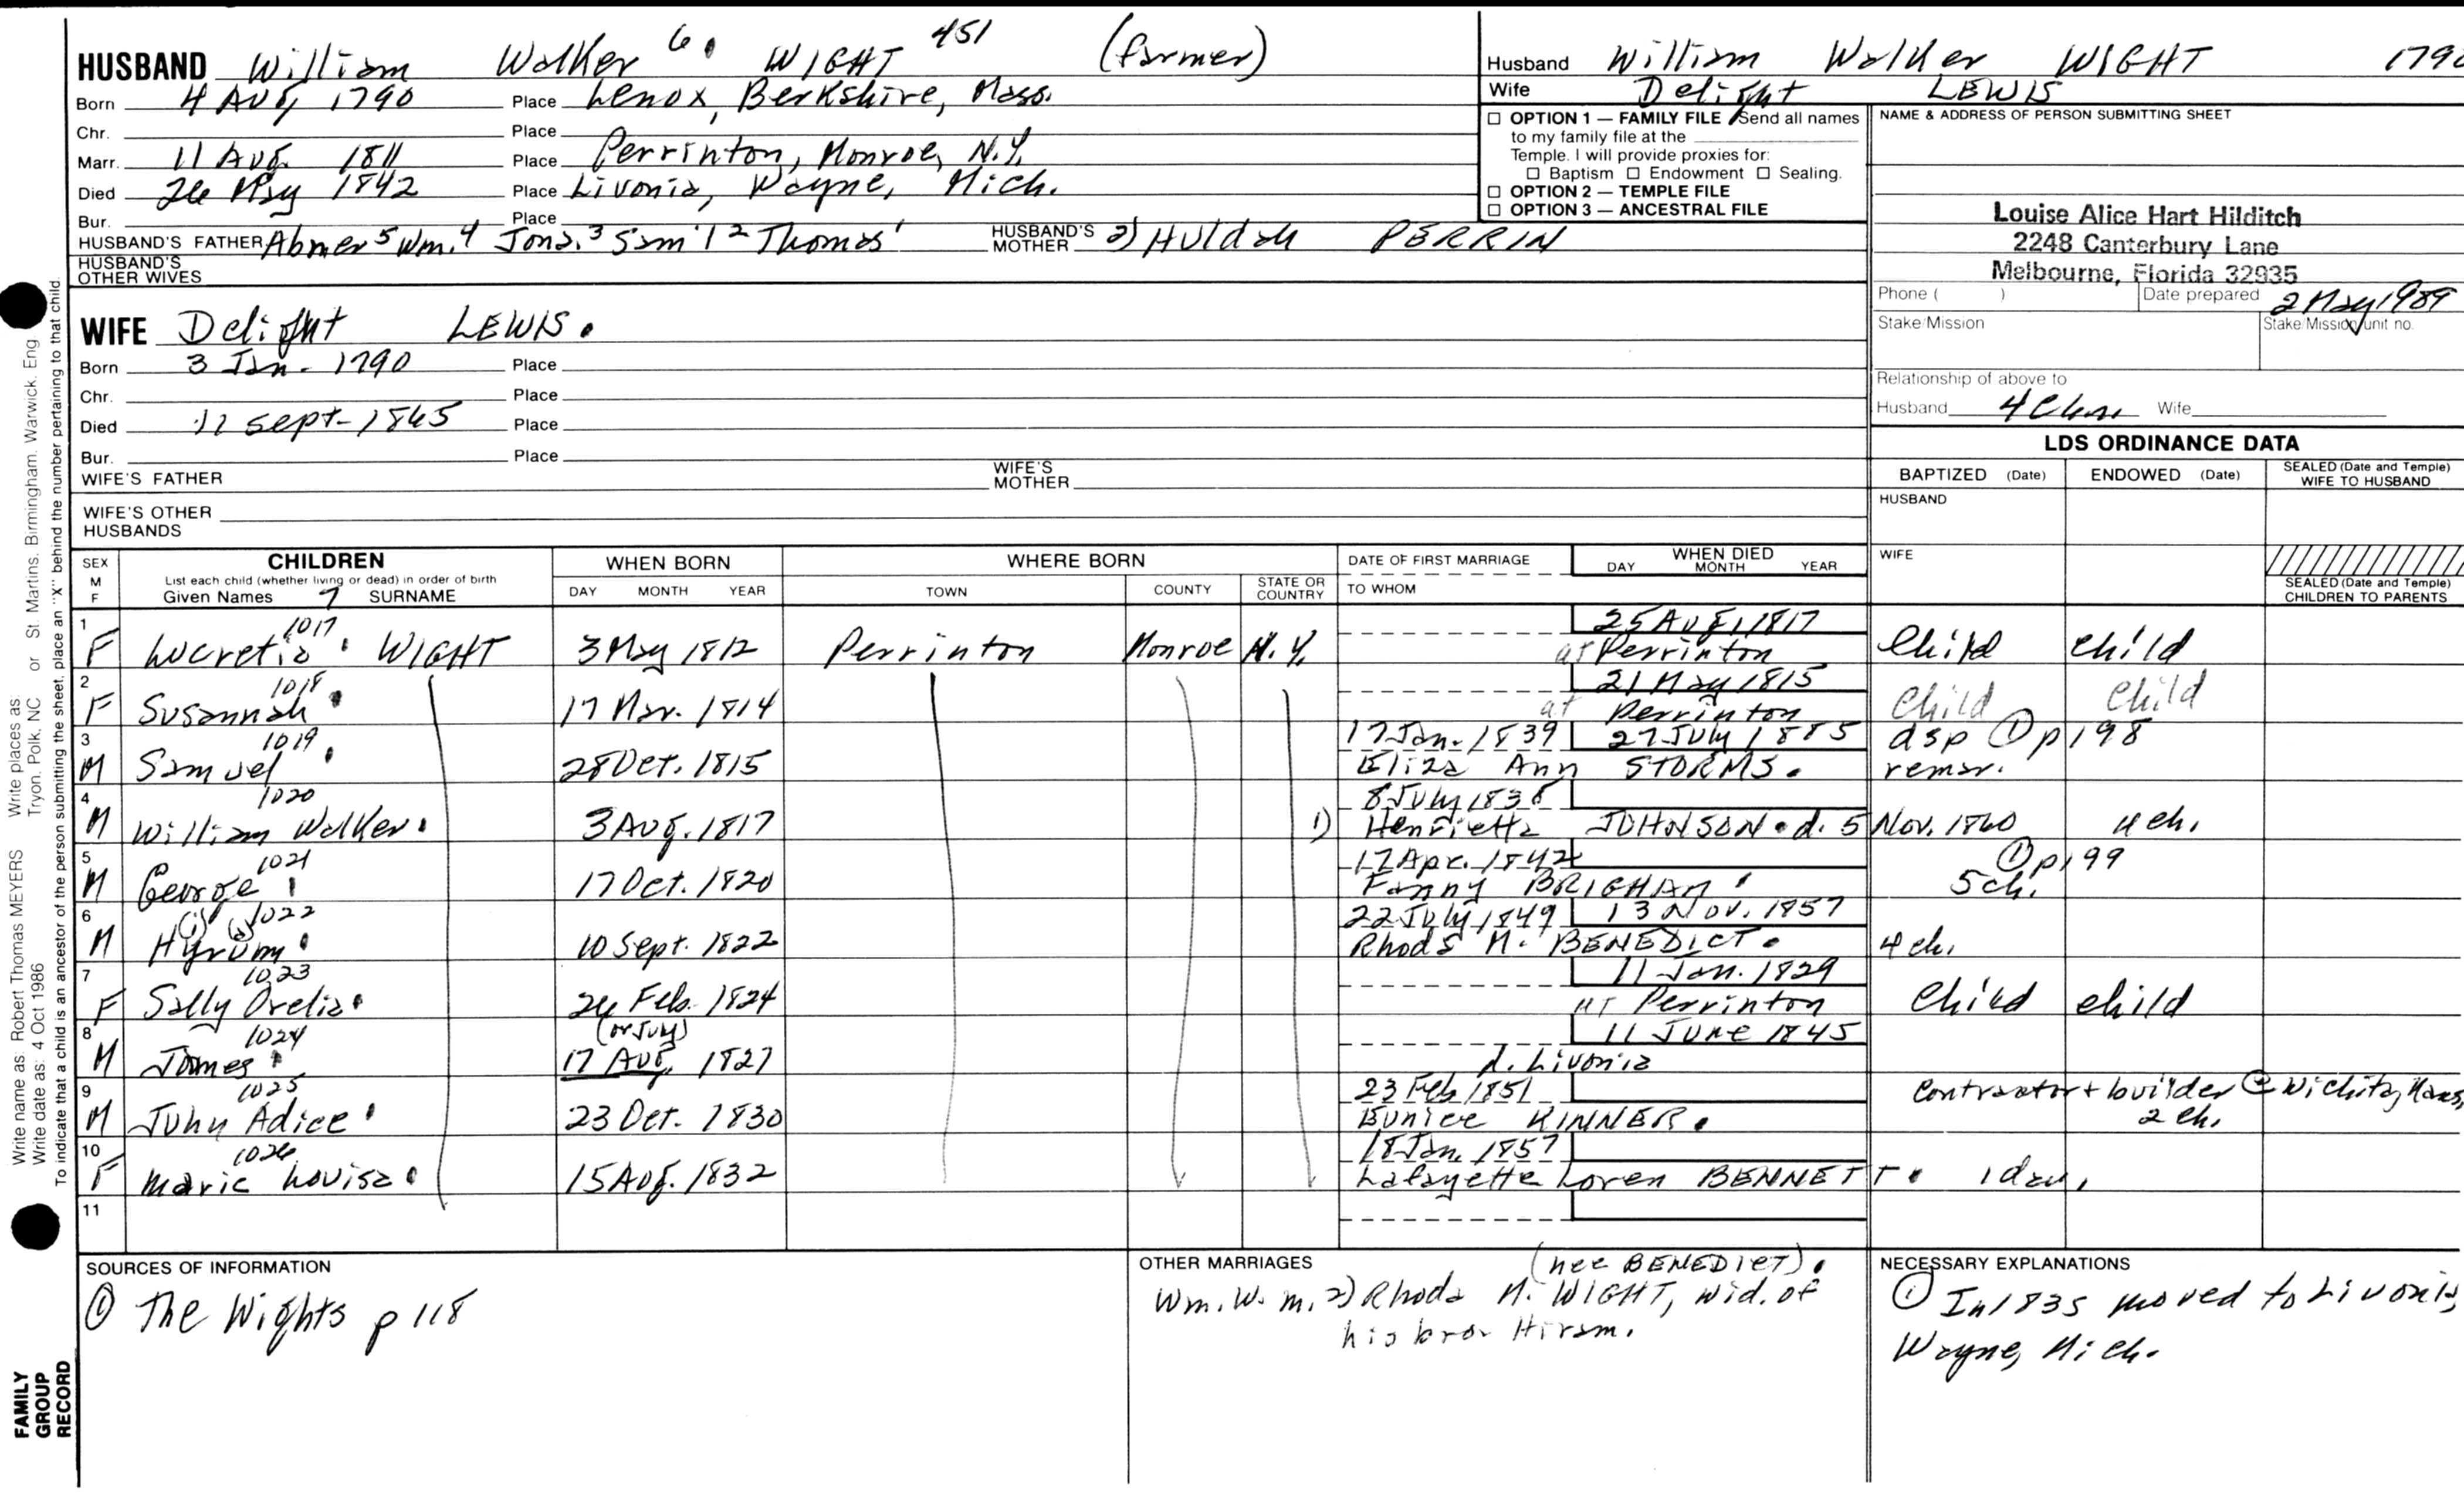 HUSBAND William Walker 6. WIGHT 451 (farmer)
Born 4 Aug, 1790 Place Lenox, Berkshire, Mass.
Chr. Place
Marr. 11 Aug. 1811 Place Perrinton, Monroe, N.Y.
Died 26 May 1842 Place Livonia, Wayne, Mich.
Bur. Place
HUSBAND'S FATHER Abner 5 Wm. 4 Jona. 3 Sam'l 2 Thomas 1 HUSBAND'S MOTHER 2) Huldah PERRIN
HUSBAND'S OTHER WIVES
Husband William Walker WIGHT 1790
Wife Delight LEWIS
☐ OPTION 1 — FAMILY FILE Send all names
to my family file at the
Temple. I will provide proxies for:
☐ Baptism ☐ Endowment ☐ Sealing.
☐ OPTION 2 — TEMPLE FILE
☐ OPTION 3 — ANCESTRAL FILE
NAME & ADDRESS OF PERSON SUBMITTING SHEET
Louise Alice Hart Hilditch
2248 Canterbury Lane
Melbourne, Florida 32935
Phone ( ) Date prepared 2 May 1989
Stake/Mission Stake/Mission/unit no.
Relationship of above to
Husband 4 C Wife
WIFE Delight LEWIS.
Born 3 Jan. 1790 Place
Chr. Place
Died 11 Sept- 1865 Place
Bur. Place
WIFE'S FATHER WIFE'S MOTHER
WIFE'S OTHER HUSBANDS
LDS ORDINANCE DATA
BAPTIZED (Date) ENDOWED (Date) SEALED (Date and Temple) WIFE TO HUSBAND
HUSBAND
WIFE
SEALED (Date and Temple) CHILDREN TO PARENTS
SEX M F
CHILDREN
List each child (whether living or dead) in order of birth
Given Names 7 SURNAME
WHEN BORN
DAY MONTH YEAR
WHERE BORN
TOWN COUNTY STATE OR COUNTRY
DATE OF FIRST MARRIAGE
TO WHOM
WHEN DIED
DAY MONTH YEAR
1 1017 25 Aug, 1817
F Lucretia. WIGHT 3 May 1812 Perrinton Monroe N.Y. at Perrinton Child Child
2 1018 21 May 1815
F Susannah. 17 Mar. 1814 at Perrinton Child Child
3 1019 17 Jan. 1839 27 July 1885 dsp ① p198
M Samuel. 28 Oct. 1815 Eliza Ann STORMS. remar.
4 1020 8 July 1838
M William Walker. 3 Aug. 1817 1) Henrietta JOHNSON. d. 5 Nov. 1860 4 ch.
5 1021 17 Apr. 1842 ① p199
M George. 17 Oct. 1820 Fanny BRIGHAM. 5 ch.
6 (i) (a) 1022 22 July 1849 13 Nov. 1857
M Hyrum. 10 Sept. 1822 Rhoda M. BENEDICT. 4 ch.
7 1023 11 Jan. 1829
F Sally Orelia. 26 Feb. 1824 at Perrinton Child child
8 1024 (or July) 11 June 1845
M James. 17 Aug, 1827 d. Livonia
9 1025 23 Feb 1851 Contractor + builder @ Wichita, Kans.
M John Adice. 23 Oct. 1830 Eunice KINNER. 2 ch.
10 1026 18 Jan. 1857
F Marie Louisa. 15 Aug. 1832 Lafayette Loren BENNETT. 1 dau.
11
SOURCES OF INFORMATION
① The Wights p 118
OTHER MARRIAGES (nee BENEDICT).
Wm. W. m. 2) Rhoda M. WIGHT, wid. of
his bro. Hiram.
NECESSARY EXPLANATIONS
① In 1835 moved to Livonia,
Wayne, Mich.
Write name as: Robert Thomas MEYERS Write places as: Tryon, Polk, NC or St. Martins, Birmingham, Warwick, Eng
Write date as: 4 Oct 1986
To indicate that a child is an ancestor of the person submitting the sheet, place an "X" behind the number pertaining to that child.
FAMILY
GROUP
RECORD